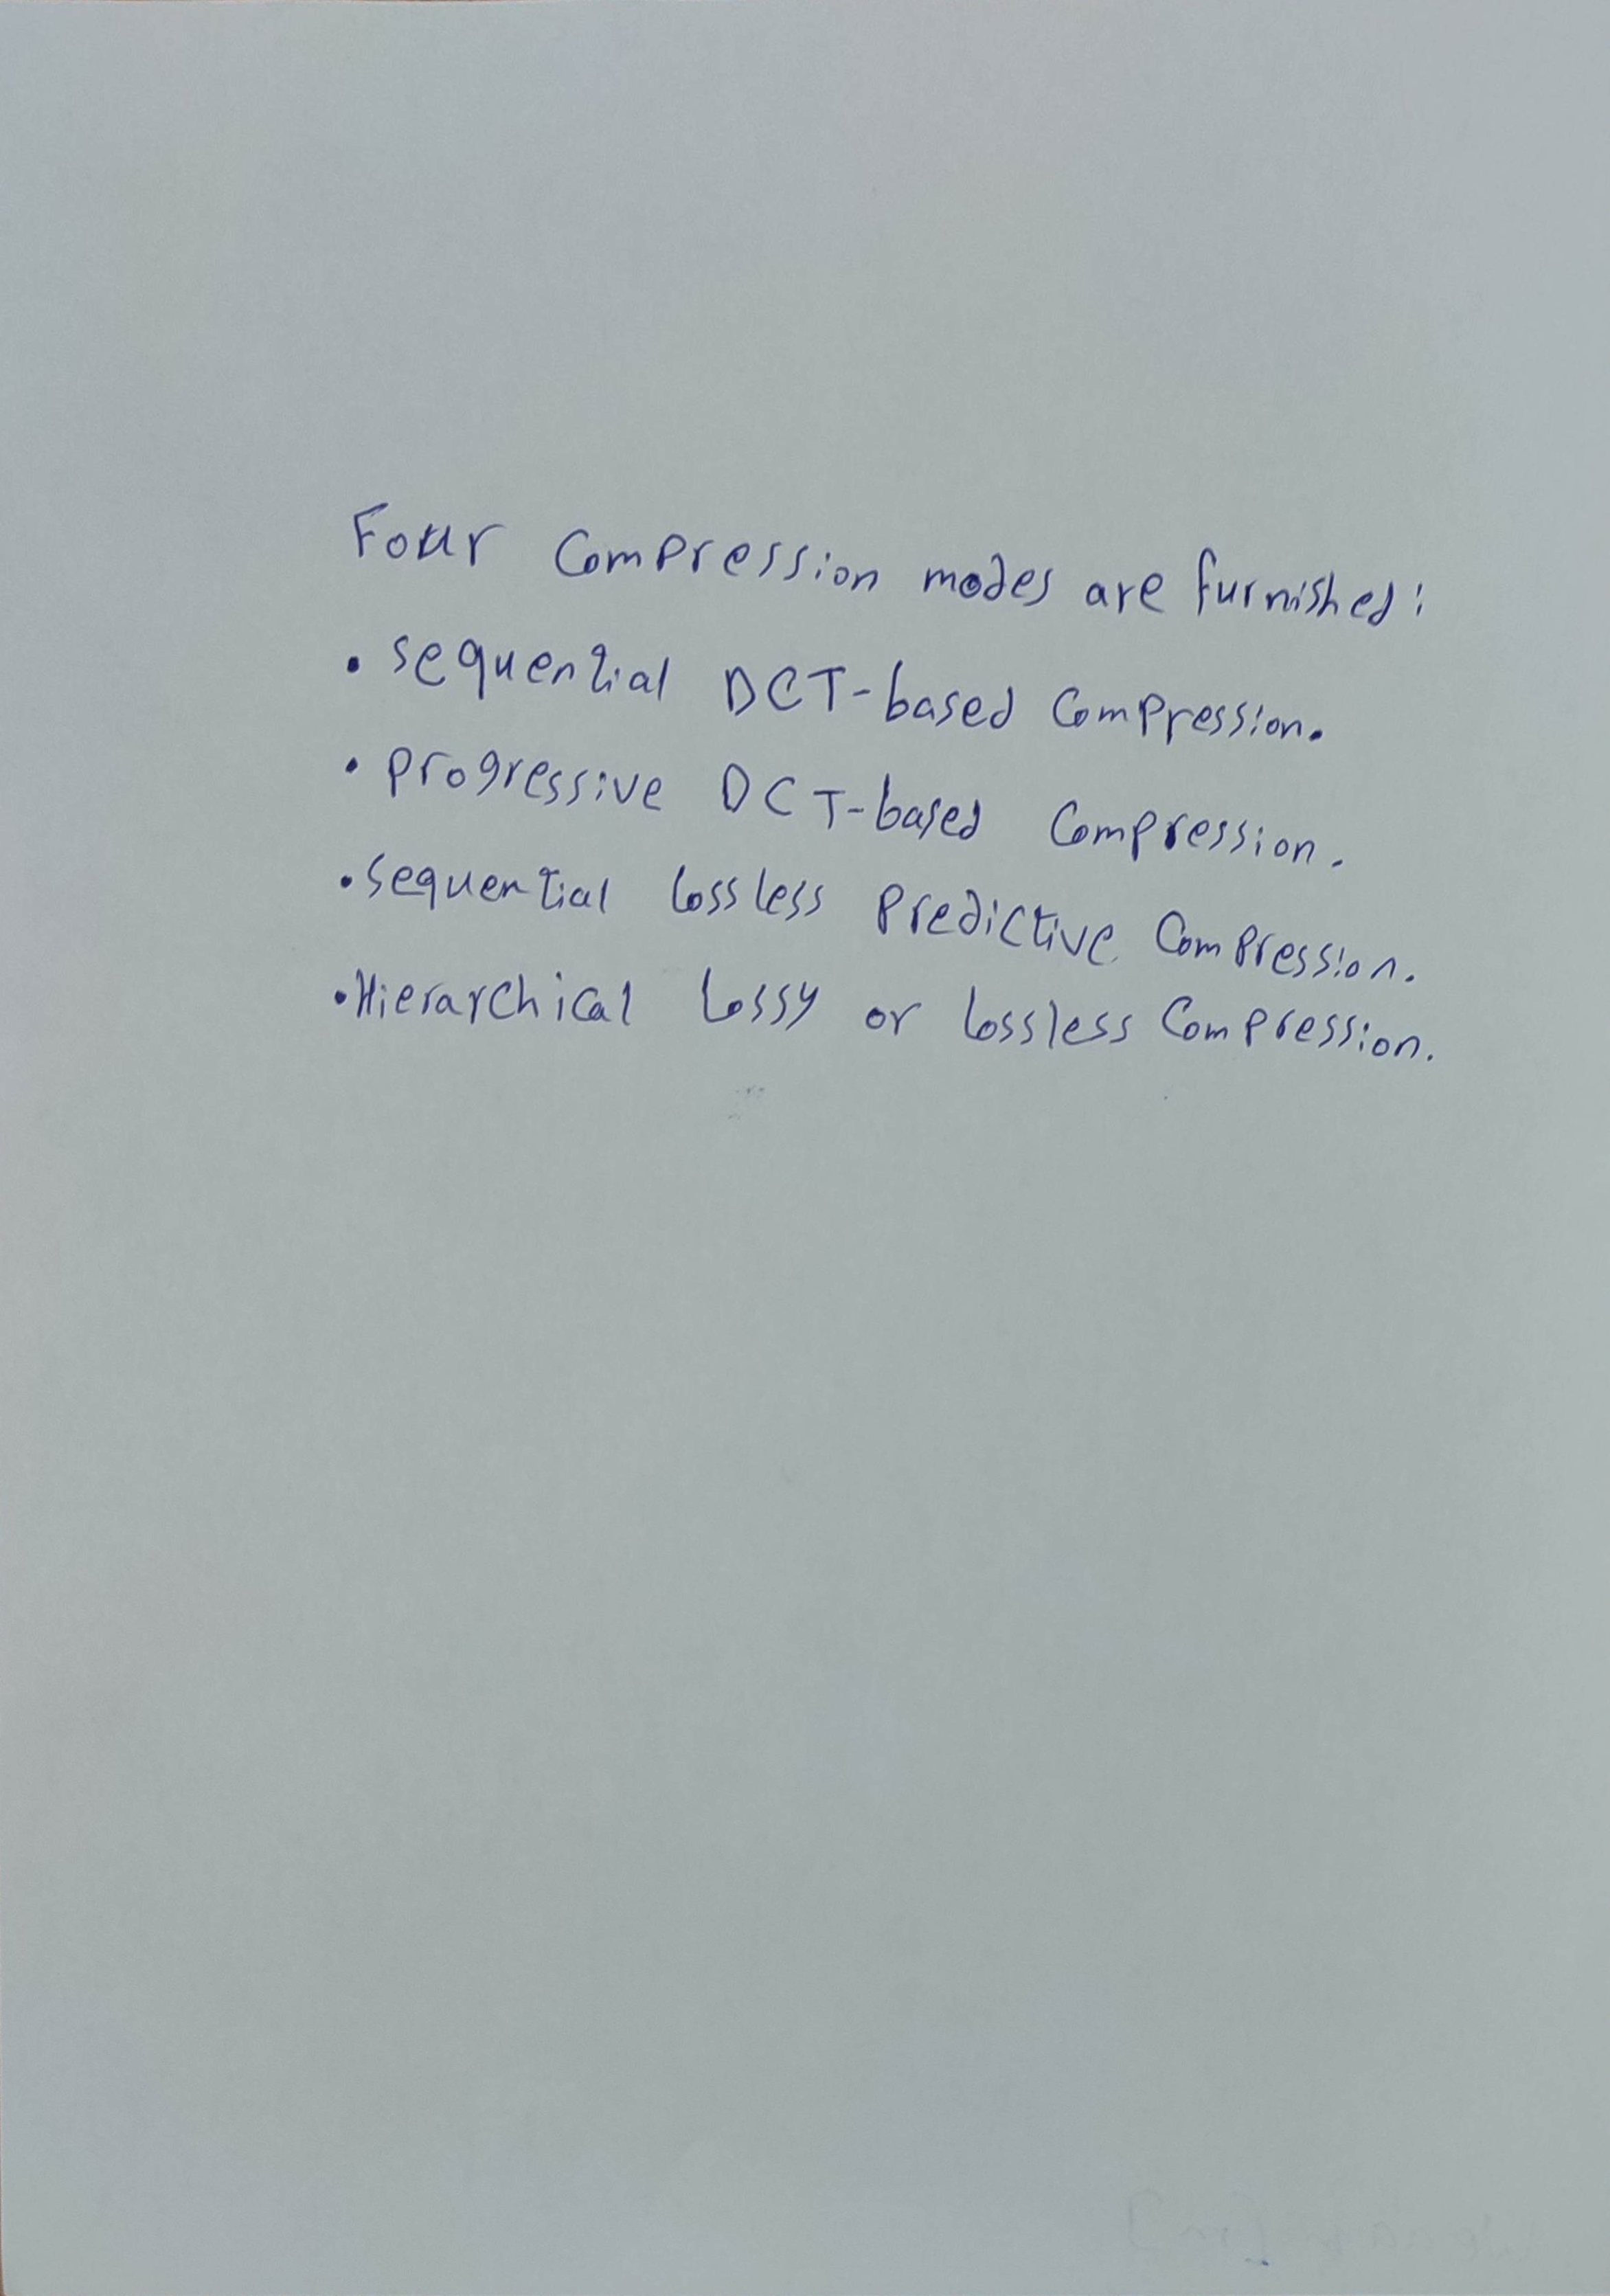 Four Compression modes are furnished:
• sequential DCT-based Compression.
• progressive DCT-based Compression.
• sequential lossless Predictive Compression.
• Hierarchical Lossy or lossless Compression.